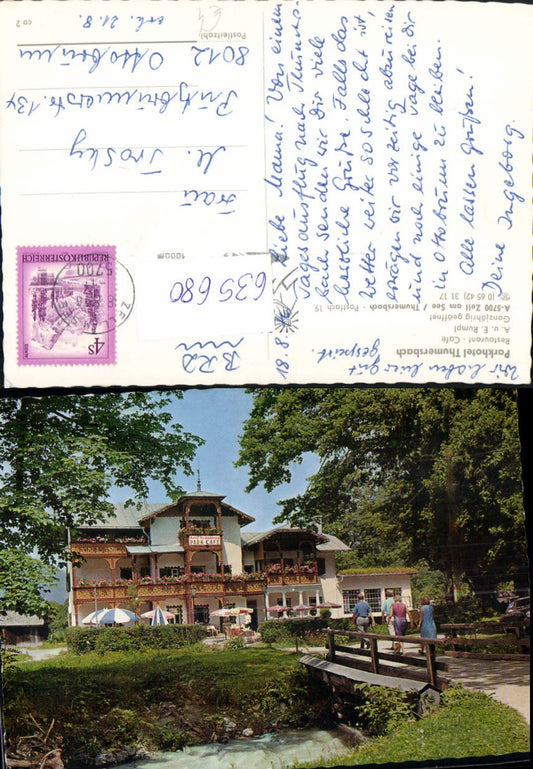 Parkhotel Thumersbach
Restaurant - Café
A. u. E. Rumpf
Ganzjährig geöffnet
A-5700 Zell am See / Thumersbach - Postfach 19
(0 65 42) 31 17
18.8.
Liebe Mama! Von einem
Tagesausflug nach Thumers-
bach senden wir Dir viele
herzliche Grüße. Falls das
Wetter weiter so schlecht ist,
erwägen wir vorzeitig abzureisen
und noch einige Tage bei Dir
in Ottobrunn zu bleiben.
Alle lassen grüßen!
Deine Ingeborg.
Wir haben hier gut
gespeist.
REPUBLIK ÖSTERREICH
4S
5700
ZELL
635 680
BRD
Frau
M. Trosky
Putzbrunnerstr. 134
8012 Ottobrunn
Postleitzahl
erh. 21.8.
ca 2
PARK-CAFÉ